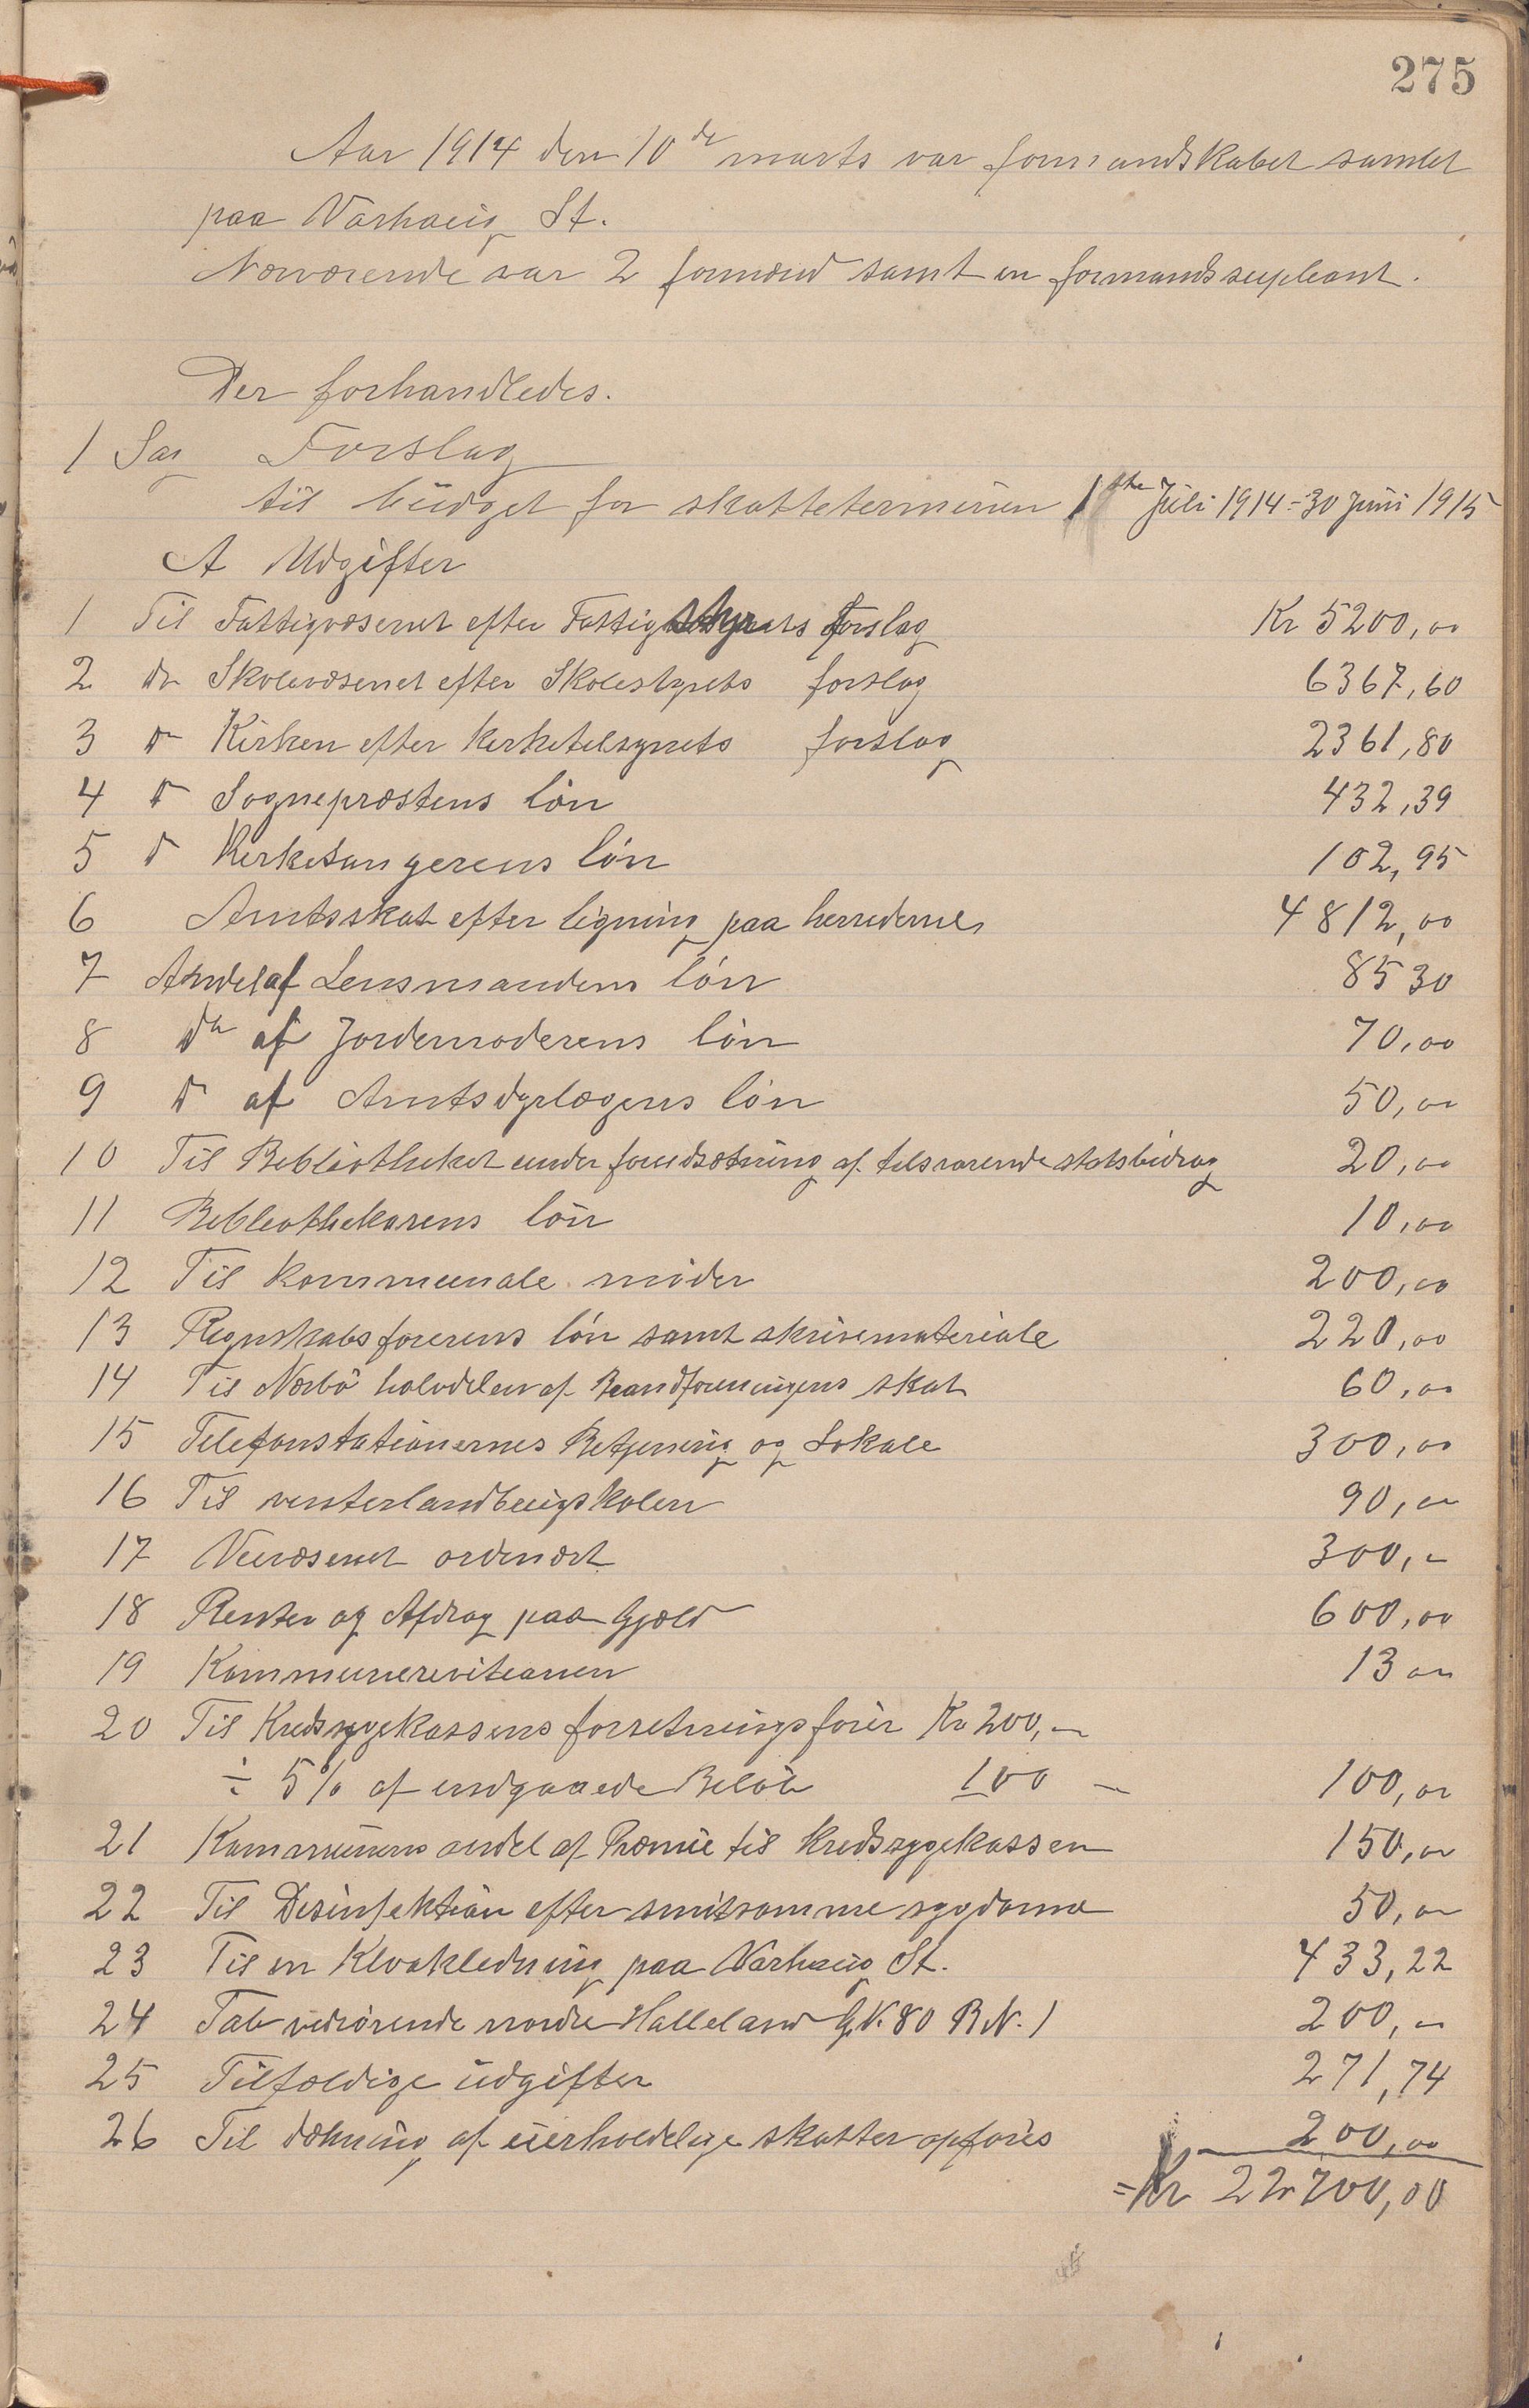 275
Aar 1914 den 10de marts var formandskabet samlet
paa Varhaug St.
Nærværende var 2 formænd samt en formandssupleant.
Der forhandledes.
1 Sag Forslag
til büdget for skatteterminen 1ste Juli 1914 - 30 Juni 1915
A Udgifter
1 Til Fattigvæsenet efter Fattigstyrets forslag Kr 5200,00
2 do Skolevæsenet efter Skolestyrets forslag 6367,60
3 do Kirken efter Kirketilsynets forslag 2361,80
4 do Sogneprestens løn 432,39
5 do Kirkesangerens løn 102,95
6 Amtsskat efter ligning paa herrederne 4812,00
7 Andel af Lensmandens løn 85 30
8 do af Jordemoderens løn 70,00
9 do af Amtsdyrlægens løn 50,00
10 Til Bibliotheket under forudsætning af tilsvarende statsbidrag 20,00
11 Bibliothekarens løn 10,00
12 Til kommunale møder 200,00
13 Regnskabsførerens løn samt skrivemateriale 220,00
14 Til Nærbø halvdelen af Brandforeningens skat 60,00
15 Telefonstationernes Betjening og Lokale 300,00
16 Til vinterlandbrugskolen 90,00
17 Veivæsenet ordinært 300,-
18 Renter og Afdrag paa Gjæld 600,00
19 Kommunerevisionen 13 00
20 Til Kredssygekassens forretningsfører Kr 200,-
÷ 5% af indgaaede Beløb 100 - 100,00
21 Kommunens andel af Præmie til Kredssygekassen 150,00
22 Til Desinfektion efter smitsomme sygdomme 50,00
23 Til en Kloakledning paa Varhaug St. 433,22
24 Tab vedrørende nordre Halleland G.N. 80 B.N. 1 200,-
25 Tilfældige üdgifter 271,74
26 Til dækning af üerholdelige skatter opføres 200,00
= Kr 22700,00